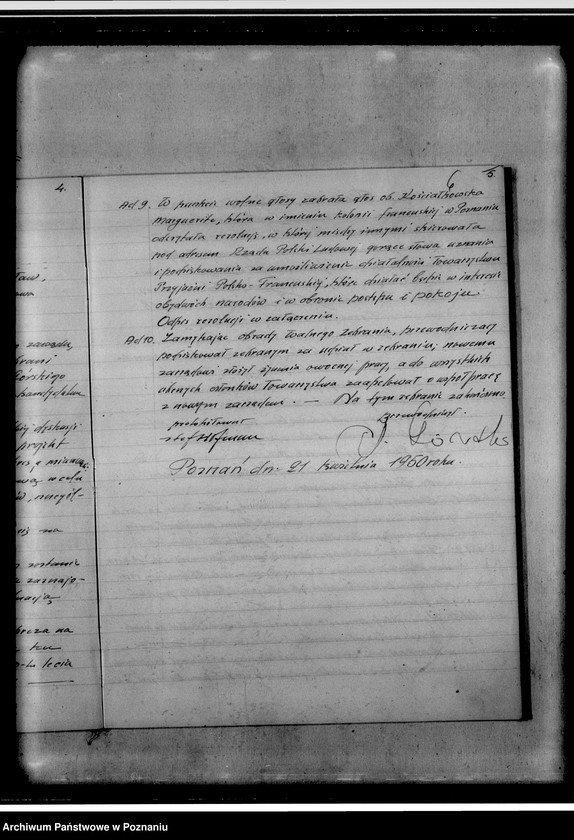 4.
zawodu
Górskiego
kandydatów
dyskusji
projekt
na
zostanie
zaznajo-
na
lecia
6
5
Ad 9. W punkcie wolne głosy zabrała głos ob. Kościałkowska
Marguerite, która w imieniu kolonii francuskiej w Poznaniu
odczytała rezolucję, w której między innymi skierowała
pod adresem Rządu Polski Ludowej gorące słowa uznania
i podziękowania za umożliwienie działalności Towarzystwa
Przyjaźni Polsko-Francuskiej, które działać będzie w interesie
obydwóch narodów i w obronie postępu i pokoju.
Odpis rezolucji w załączeniu.
Ad 10. Zamykając obrady Walnego Zebrania, przewodniczący
podziękował zebranym za udział w zebraniu, nowemu
zarządowi złożył życzenia owocnej pracy, a do wszystkich
obecnych członków Towarzystwa zaapelował o współpracę
z nowym zarządem. — Na tym zebranie zakończono.
protokółował
przewodniczył
Poznań dn. 21 kwietnia 1960 roku.
Archiwum Państwowe w Poznaniu